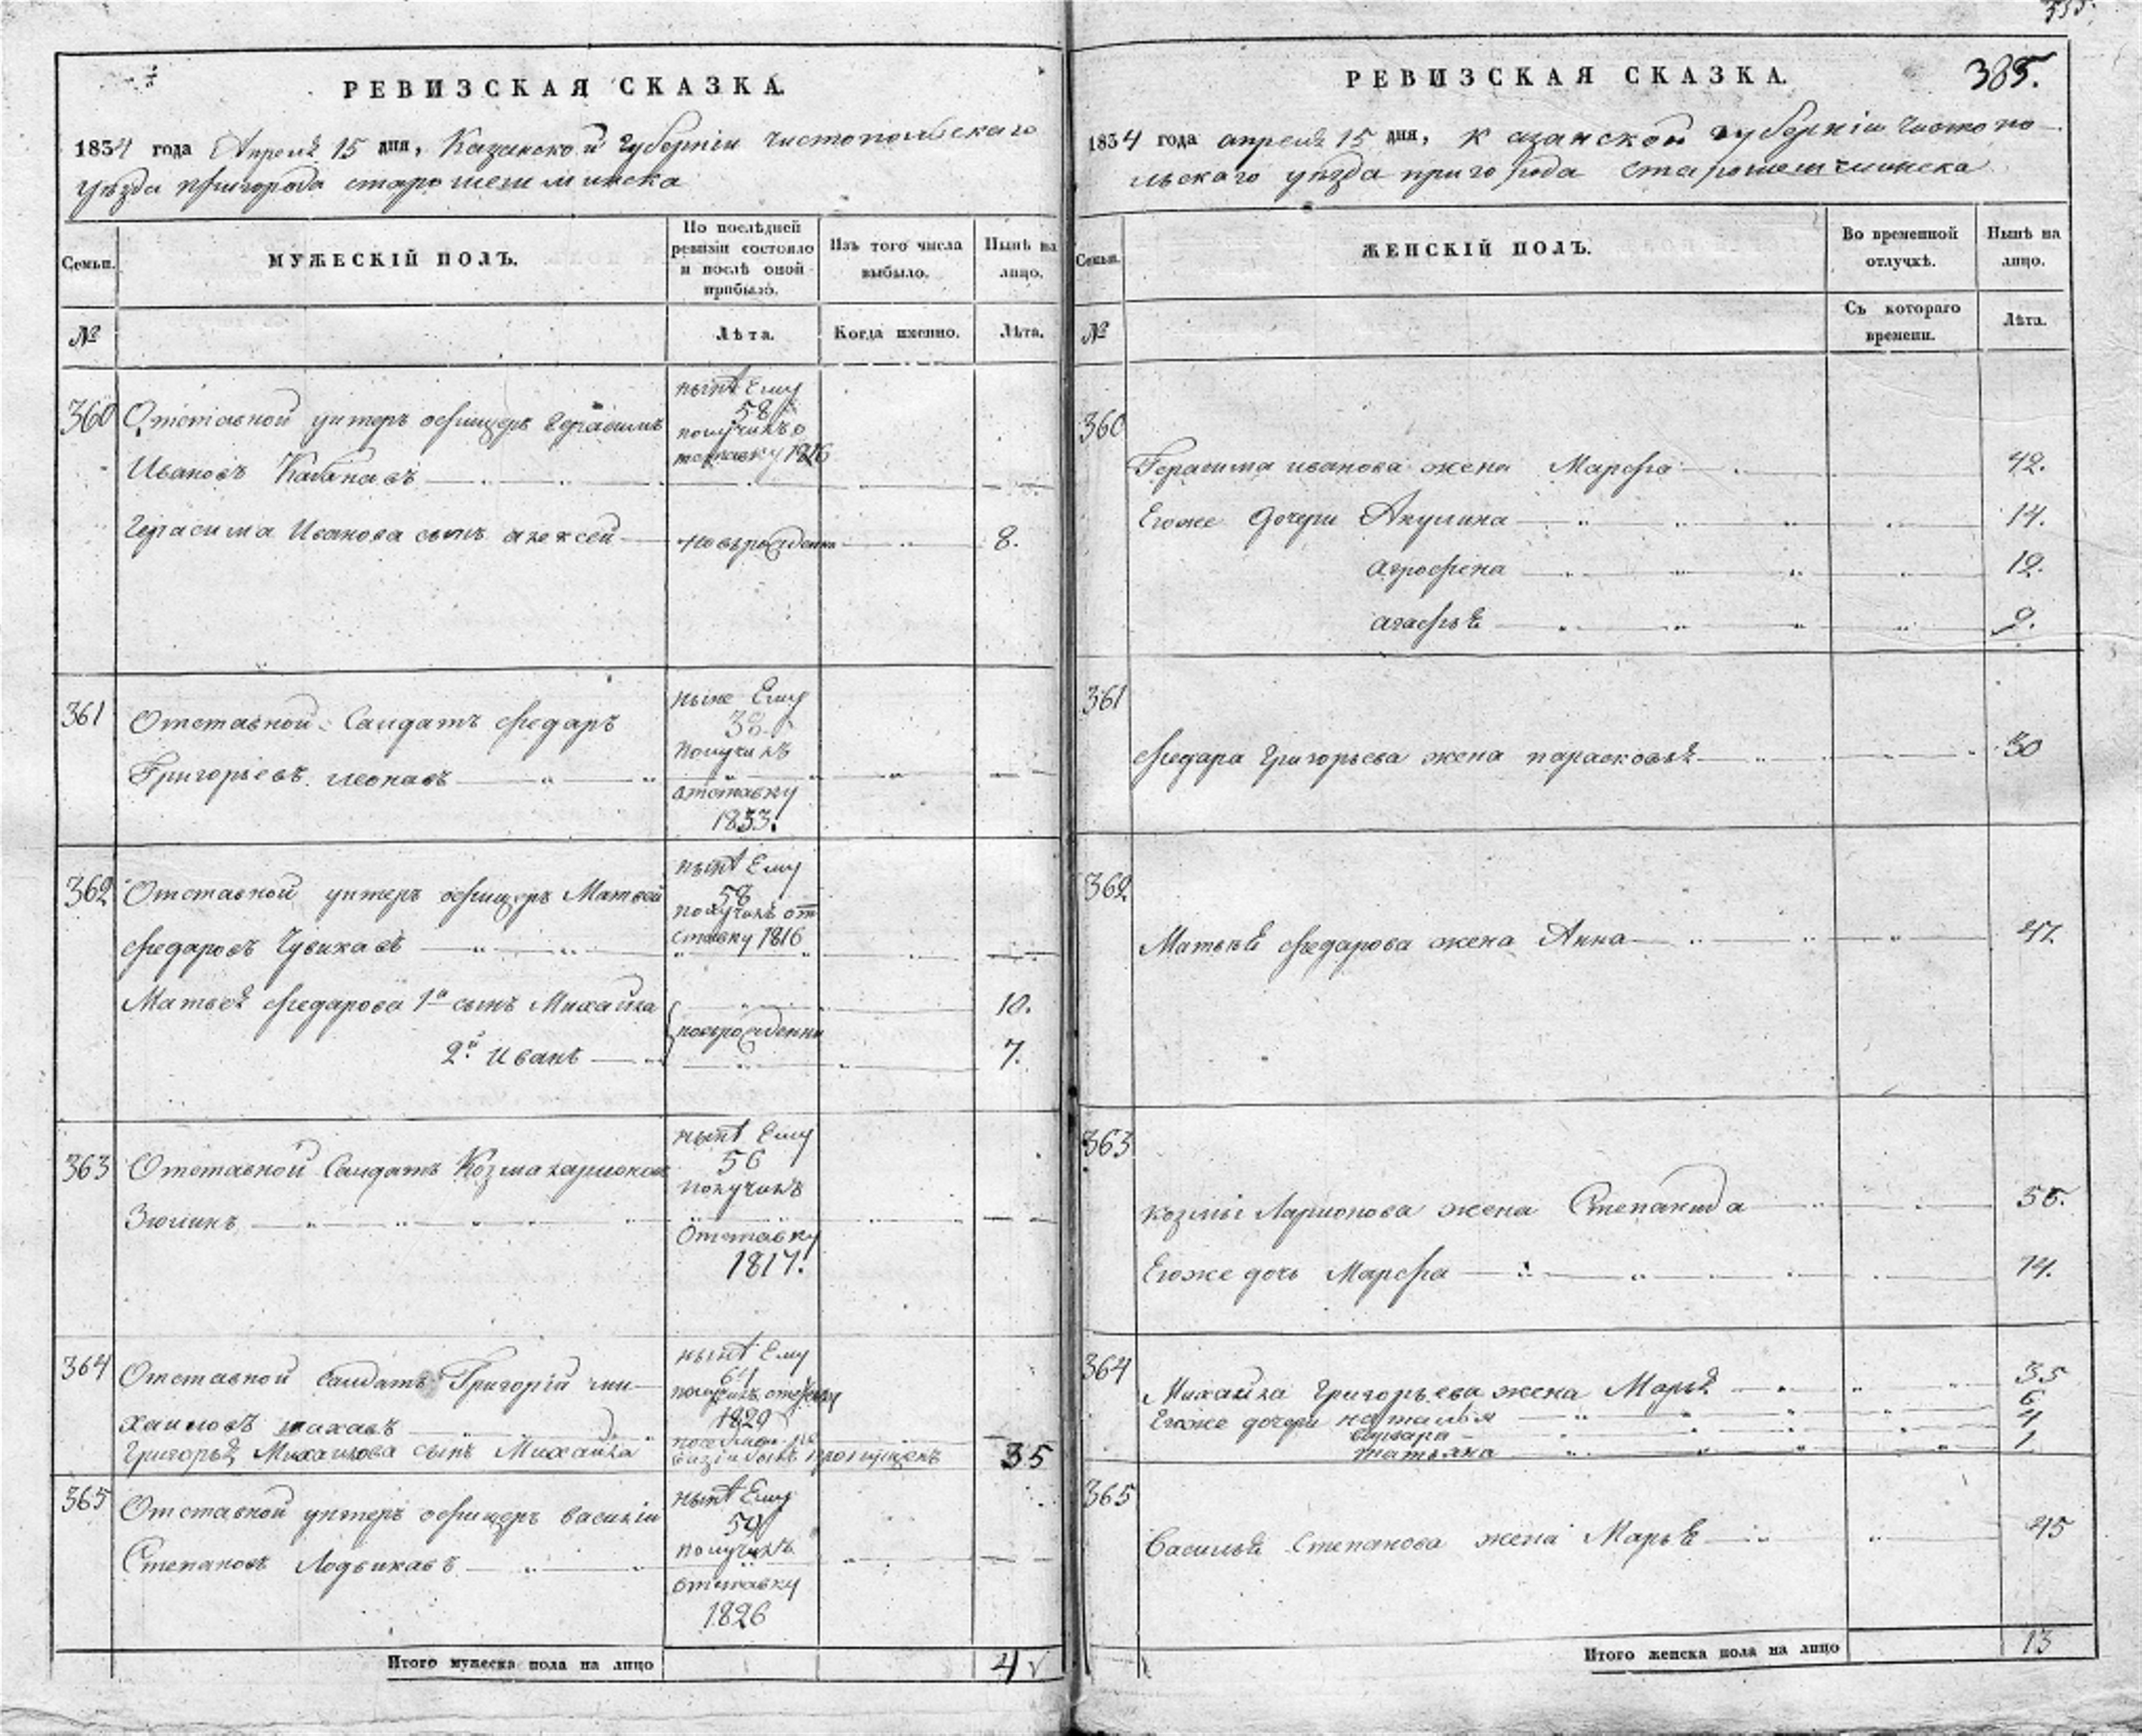 385.
РЕВИЗСКАЯ СКАЗКА.
1834 года Апреля 15 дня, Казанской Губернiи чистопольскаго
уѣзда пригорода старошешминска
Семьи.
МУЖЕСКIЙ ПОЛЪ.
По послѣдней ревизiи состояло и послѣ оной прибыло.
Изъ того числа выбыло.
Нынѣ на лицо.
№
Лѣта.
Когда именно.
Лѣта.
360 Отставной унтеръ офицеръ Герасимъ
Ивановъ Кабанавъ
нынѣ Ему
58
получилъ о
тставку 1816
Герасима Иванова сынъ алексей новорожденна 8.
361 Отставной Салдатъ федаръ
Григорьевъ леонавъ
ныне Ему
38
получилъ
отставку
1833.
362 Отставной унтеръ офицеръ Матвей
федаровъ Чувикавъ
нынѣ Ему
58
получилъ от
ставку 1816
Матвея федарова 1й сынъ Михайла 10.
новорожденны
2й Иванъ 7.
363 Отставной Салдатъ Козма ларионовъ
Зюлинъ
нынѣ Ему
56
получилъ
Отставку
1817.
364 Отставной Салдатъ Григорiй ми-
хаиловъ
нынѣ Ему
61
1829
Григорья Михаилова сынъ Михайла
пропущенъ 35
365 Отставной унтеръ офицеръ василiи
Степановъ Лодвикавъ
нынѣ Ему
59
получилъ
отставку
1826
Итого мужеска пола на лицо 4
РЕВИЗСКАЯ СКАЗКА.
1834 года апреля 15 дня, Казанской губернiи чистопо-
льскаго уѣзда пригорода старошешминска
Семьи.
ЖЕНСКIЙ ПОЛЪ.
Во временной отлучкѣ.
Нынѣ на лицо.
№
Съ котораго времени.
Лѣта.
360
Герасима иванова жена Марфа 42.
Егоже дочери Акулина 14.
аграфена 12.
агафья 9.
361
федара Григорьева жена парасковья 30
362
Матвея федарова жена Анна 47.
363
козмы Ларионова жена Степанида 55.
Егоже дочь Марфа 14.
364
Михаила Григорьева жена Марья 35
Егоже дочери наталья 6
варвара 4
татьяна 1
365
Василья Степанова жена Марья 45
Итого женска пола на лицо 13